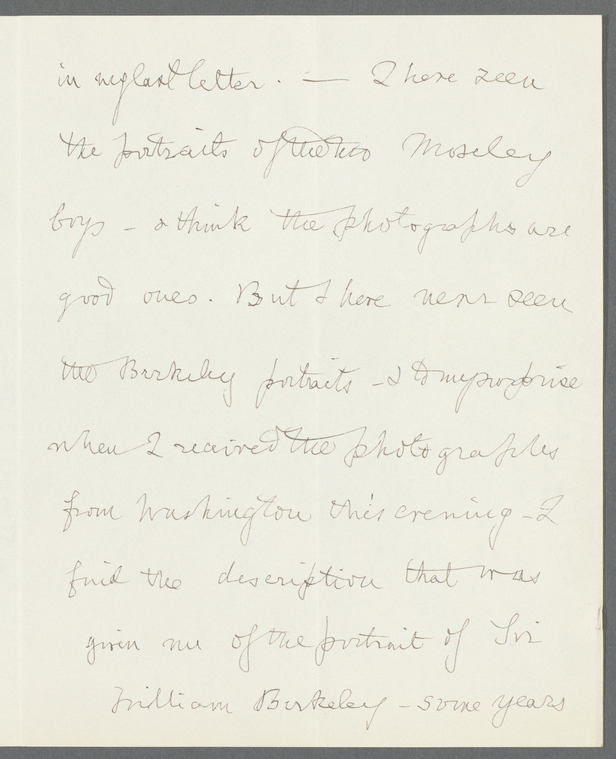 in my last letter. — I have seen
the portraits of the two Moseley
boys - & think the photographs are
good ones. But I have never seen
the Berkeley portraits - & to my surprise
when I received the photographs
from Washington this evening - I
find the description that was
given me of the portrait of Sir
William Berkeley - some years